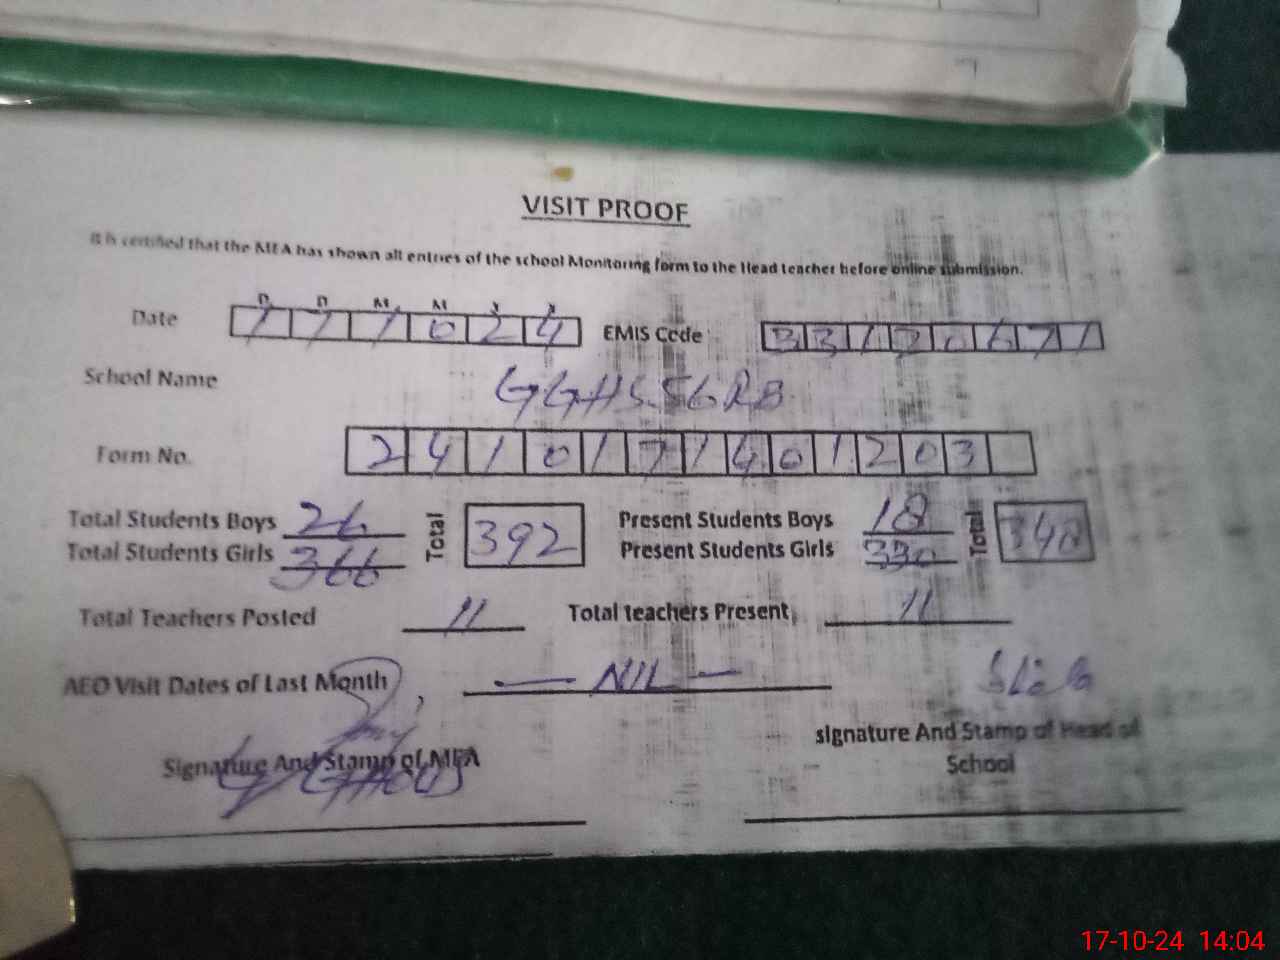 VISIT PROOF
It is certified that the MEA has shown all entries of the school Monitoring form to the Head teacher before online submission.
D D M M Y Y
Date 1 7 1 0 2 4 EMIS Code 3 3 1 2 0 6 7 1
School Name GGHS 56 RB
Form No. 2 4 1 0 1 7 1 4 0 1 2 0 3
Total Students Boys 26 Total 392 Present Students Boys 18 Total 348
Total Students Girls 366 Present Students Girls 330
Total Teachers Posted 11 Total teachers Present 11
AEO Visit Dates of Last Month — NIL —
signature And Stamp of Head of School
Signature And Stamp of MEA
17-10-24 14:04